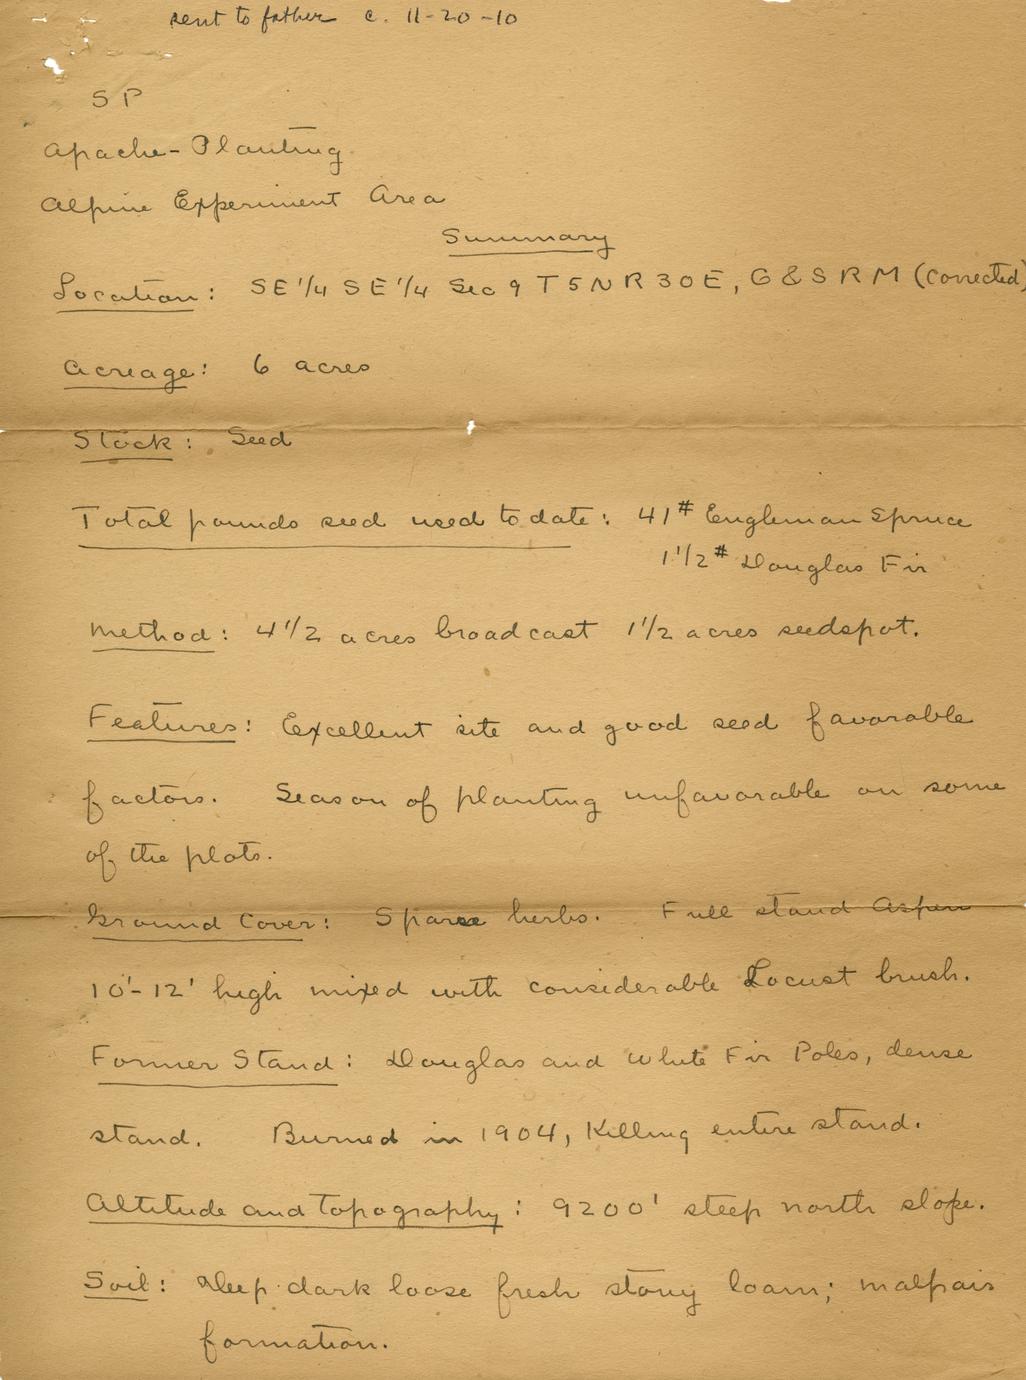 sent to father c. 11-20-10
SP
Apache-Planting
Alpine Experiment Area
Summary
Location: SE 1/4 SE 1/4 Sec 9 T5N R30E, G&SRM (corrected)
Acreage: 6 acres
Stock: Seed
Total pounds seed used to date: 41# Engleman Spruce
1 1/2# Douglas Fir
Method: 4 1/2 acres broadcast 1 1/2 acres seedspot.
Features: Excellent site and good seed favorable
factors. Season of planting unfavorable on some
of the plots.
Ground Cover: Sparse herbs. Full stand Aspen
10'-12' high mixed with considerable Locust brush.
Former Stand: Douglas and White Fir Poles, dense
stand. Burned in 1904, Killing entire stand.
Altitude and topography: 9200' steep north slope.
Soil: Deep dark loose fresh stony loam; malpais
formation.